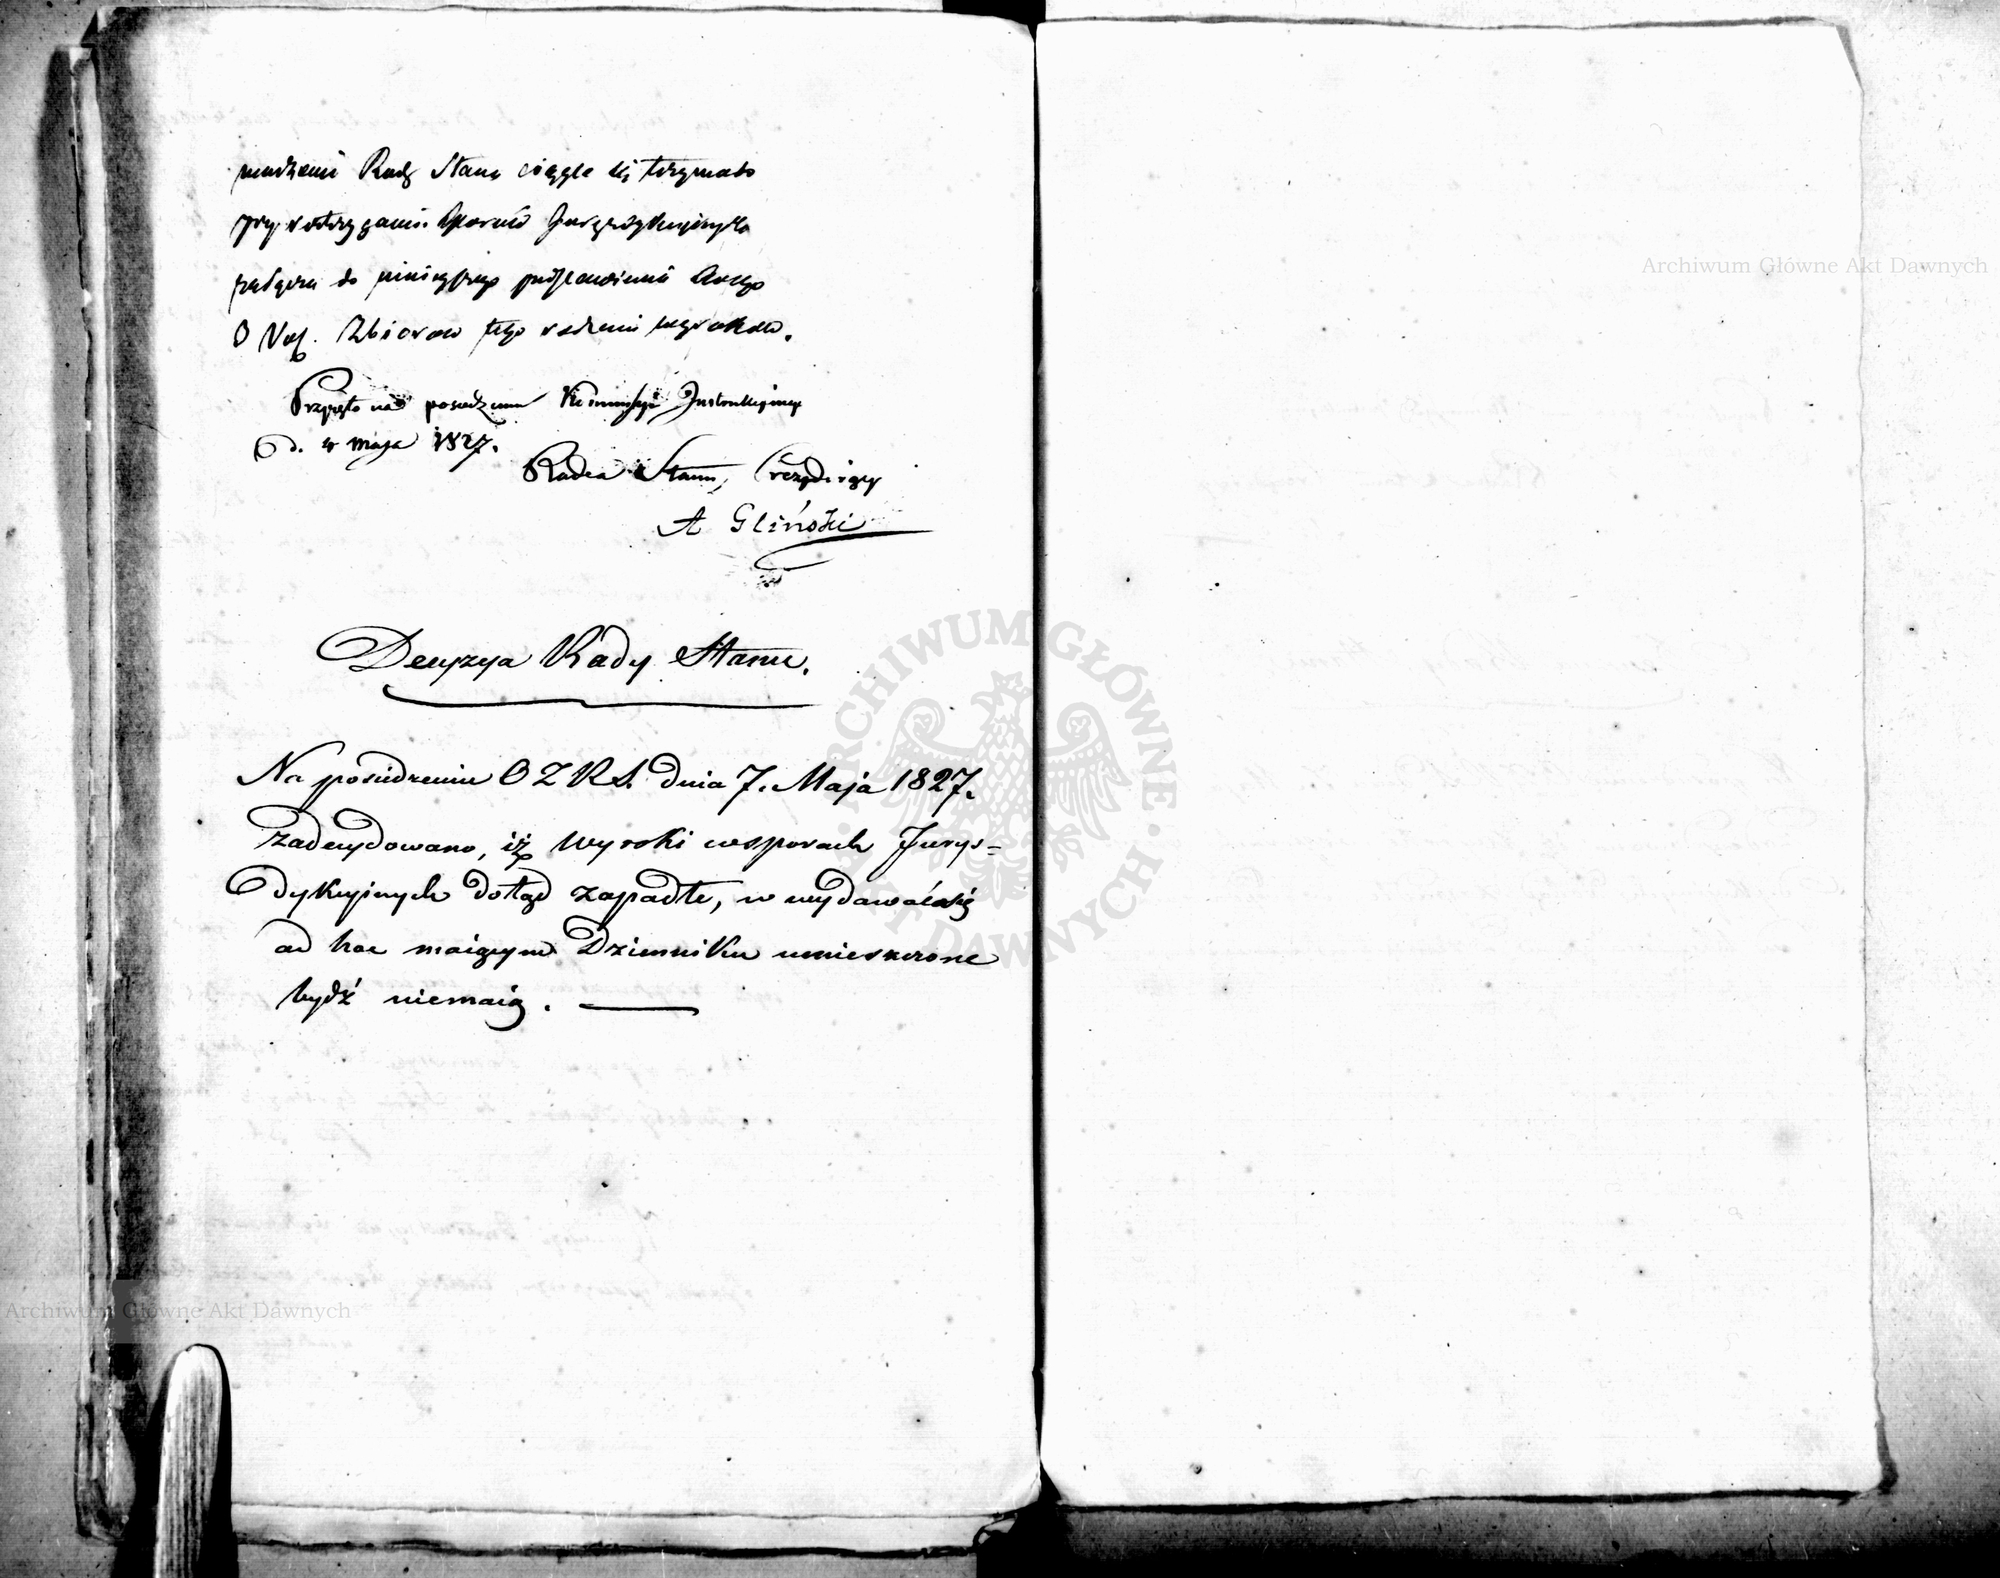 Rady Stanu ciągle się trzymało
przy rozstrzyganiu Sporów Jurysdykcyjnych
załącza do niniejszego przedstawienia
Zbiorów tego rodzaju wyroków.
Przyjęto na posiedzeniu Kommissyi Instrukcyjney
d. 4 maja 1827.
Radca Stanu, Prezyduiący
A Gliński
Decyzya Rady Stanu.
Na posiedzeniu O Z R S. dnia 7. Maja 1827.
zadecydowano, iż wyroki w sporach Jurys=
dykcyjnych dotąd zapadłe, w wydawać się
ad hoc maiącym Dzienniku umieszczone
bydź niemaią.
Archiwum Główne Akt Dawnych
Archiwum Główne Akt Dawnych
ARCHIWUM GŁÓWNE AKT DAWNYCH